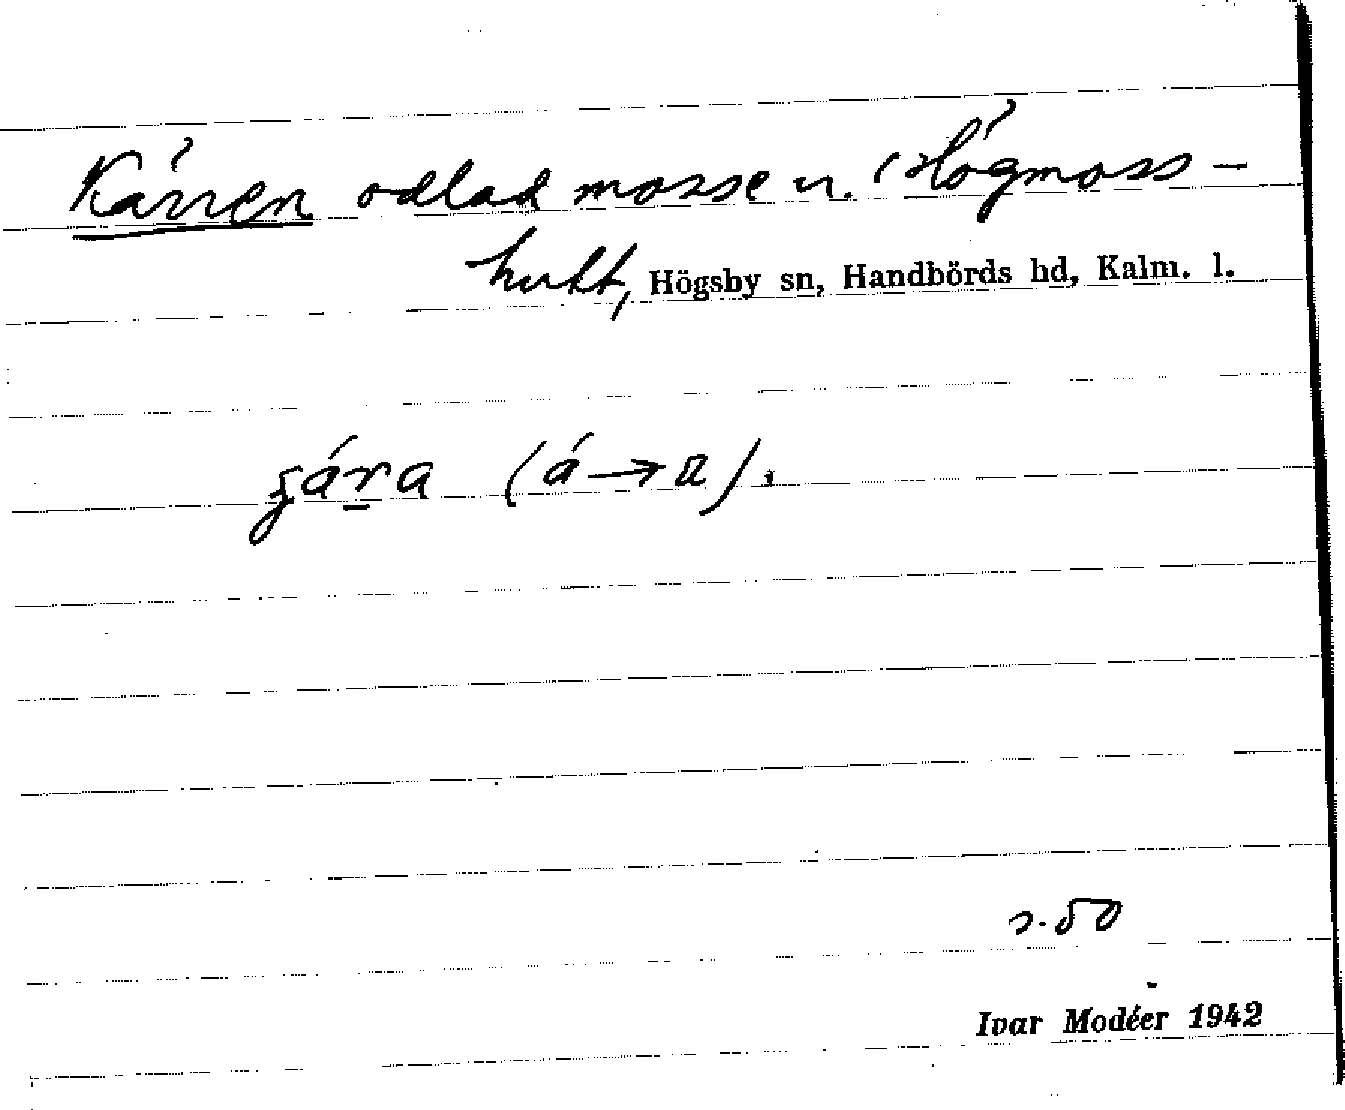 Kärren odlad mosse u. Högmoss-
hult, Högsby sn, Handbörds hd, Kalm. l.
(á → a).
s. 50
Ivar Modéer 1942